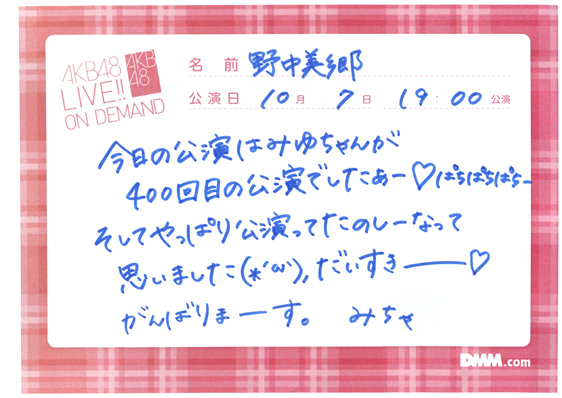 AKB48
LIVE!!
ON DEMAND
AKB
48
名前 野中美郷
公演日 10月 7日 19:00公演
今日の公演はみゆちゃんが
400回目の公演でしたあー♡ぱちぱちぱちー
そしてやっぱり公演ってたのしーなって
思いました(*´ω`),だいすきー♡
がんばりまーす。 みちゃ
DMM.com